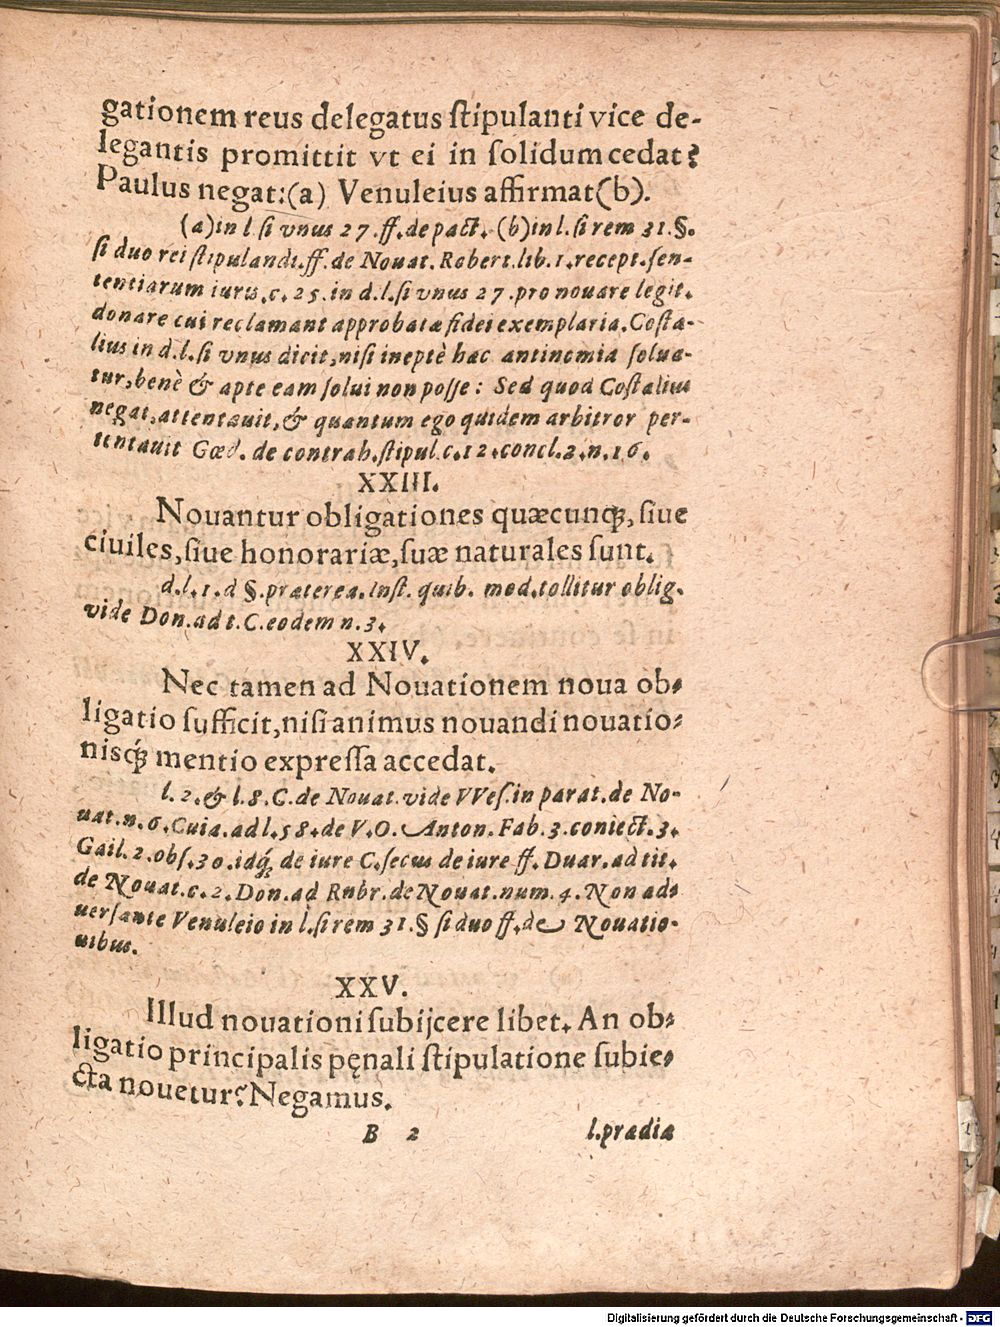 gationem reus delegatus ſtipulanti vice de-
legantis promittit vt ei in ſolidum cedat?
Paulus negat:(a) Venuleius affirmat(b).
(a)in l.ſi vnus 27.ff.de pact. (b)in l.ſi rem 31.§.
ſi duo rei ſtipulandi.ff.de Nouat.Robert.lib.1.recept.ſen-
tentiarum iuris.c.25.in d.l.ſi vnus 27.pro nouare legit.
donare cui reclamant approbatæ fidei exemplaria.Coſta-
lius in d.l.ſi vnus dicit,niſi ineptè hac antinomia ſolua-
tur,benè & apte eam ſolui non poſſe: Sed quod Coſtalius
negat,attentauit,& quantum ego quidem arbitror per-
tentauit Gœd. de contrah.ſtipul.c.12.concl.2.n.16.
XXIII.
Nouantur obligationes quæcunq́;,ſiue
ciuiles,ſiue honorariæ,ſuæ naturales ſunt.
d.l.1.d §.præterea.Inſt. quib. mod.tollitur oblig.
vide Don.ad t.C.eodem n.3.
XXIV.
Nec tamen ad Nouationem noua ob-
ligatio ſufficit,niſi animus nouandi nouatio-
nisq́; mentio expreſſa accedat.
l.2.& l.8.C.de Nouat.vide VVeſ.in parat.de No-
uat.n.6.Cuia.ad l.58.de V.O. Anton.Fab.3.coniect.3.
Gail.2.obſ.30.idq́; de iure C.ſecus de iure ff. Duar.ad tit.
de Nouat.c.2.Don.ad Rubr.de Nouat.num.4.Non ad-
uerſante Venuleio in l.ſi rem 31.§ ſi duo ff.de Nouatio-
nibus.
XXV.
Illud nouationi ſubijcere libet. An ob-
ligatio principalis pęnali ſtipulatione ſubie-
cta nouetur?Negamus.
B 2 l.prædia
Digitalisierung gefördert durch die Deutsche Forschungsgemeinschaft - DFG